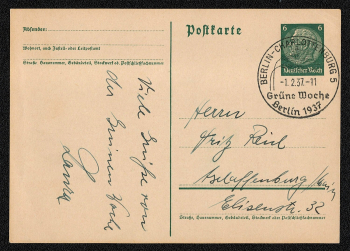 Absender:
Wohnort, auch Zustell- oder Leitpostamt
Straße, Hausnummer, Gebäudeteil, Stockwerk od. Postschließfachnummer
Viele Grüße von
der Grünen Woche
Postkarte
6 6
Deutsches Reich
BERLIN-CHARLOTTENBURG 5
-1.2.37.-11
Grüne Woche
Berlin 1937
Herrn
Fritz Reil
Aschaffenburg
Elisenstr. 32
Straße, Hausnummer, Gebäudeteil, Stockwerk od. Postschließfachnummer